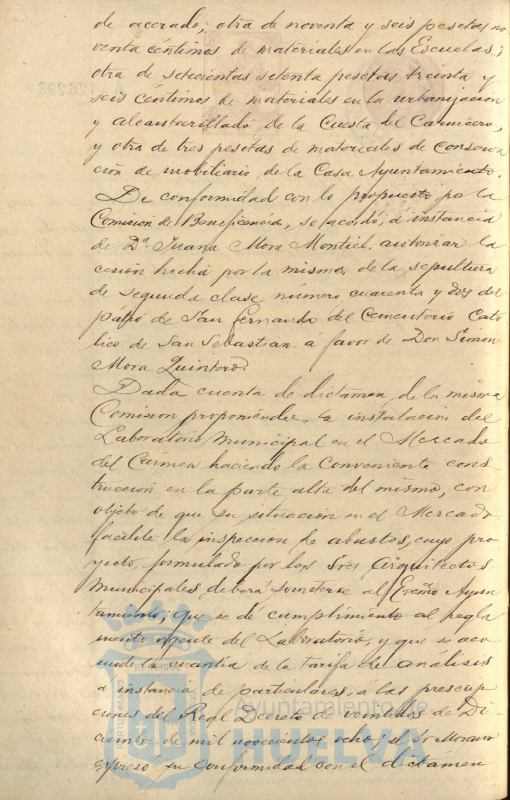 de acerado; otra de noventa y seis pesetas no
venta céntimos de materiales en las Escuelas;
otra de setecientas setenta pesetas treinta y
seis céntimos de materiales en la urbanización
y alcantarillado de la Cuesta del Carnicero,
y otra de tres pesetas de materiales de conserva
ción de mobiliario de la Casa Ayuntamiento.
De conformidad con lo propuesto por la
Comision de Beneficencia, se acordó, á instancia
de Dª. Juana Mora Montiel, autorizar la
cesión hecha por la misma de la sepultura
de segunda clase número cuarenta y dos del
patio de San Fernando del Cementerio Cató
lico de San Sebastian a favor de Don Simon
Mora Quintero.
Dada cuenta de dictámen de la misma
Comision proponiendo la instalación del
Laboratorio Municipal en el Mercado
del Carmen haciendo la conveniente cons-
trucción en la parte alta del mismo, con
objeto de que su situación en el Mercado
facilite la inspección de abastos, cuyo pro
yecto, formulado por los Sres Arquitectos
Municipales, deberá someterse al Excmo Ayun
tamiento; que se dé cumplimiento al regla
mento vigente del Laboratorio, y que se aco
mode la cuantia de la tarifa de análisis
a instancia de particulares, a las prescrip
ciones del Real Decreto de veintidos de Di
ciembre de mil novecientos ocho; el Sr Moreno
expresó su conformidad con el dictámen
Ayuntamiento de
HUELVA